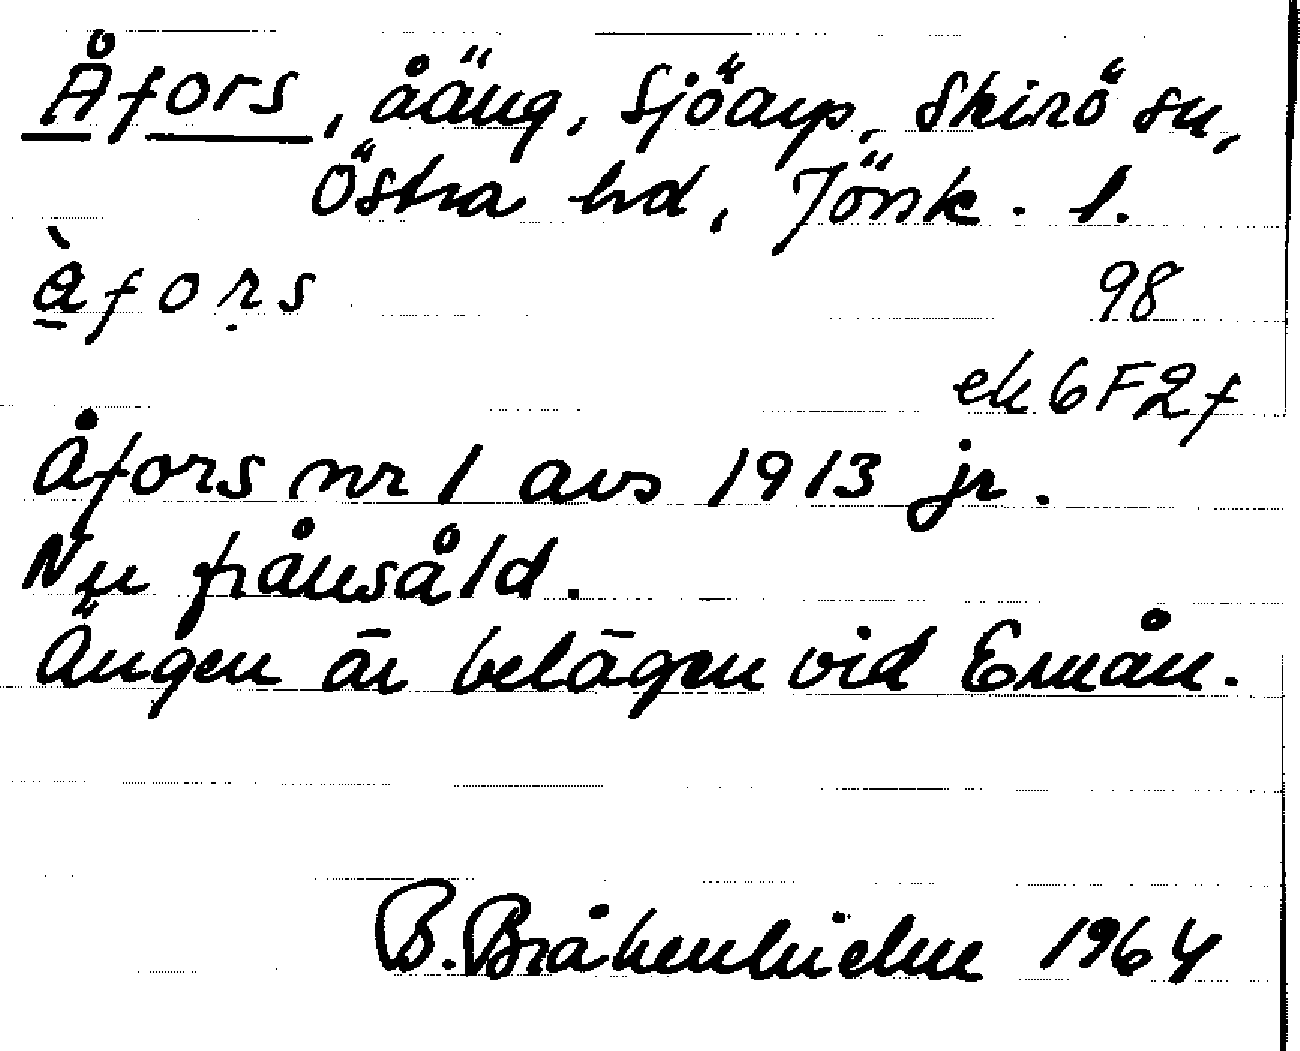 Åfors, åäng, Sjöarp, Skirö sn,
Östra hd, Jönk. l.
å̱̀fọṛs 98
ek 6F2f
Åfors nr 1 avs 1913 jr.
Nu frånsåld.
Ängen är belägen vid Emån.
B. Bråkenhielm 1964